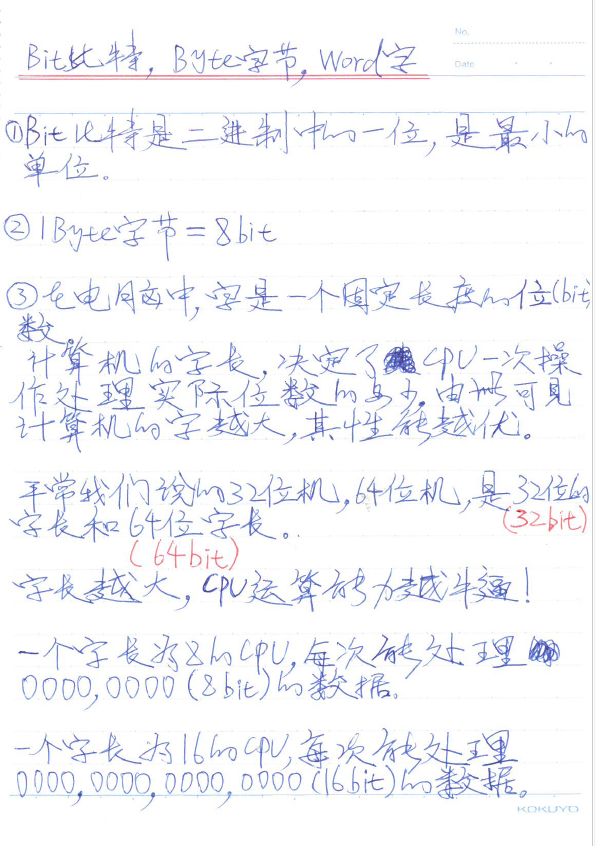 No.
Date
Bit比特, Byte字节, Word字
①Bit比特是二进制中的一位,是最小的
单位。
②1Byte字节=8bit
③在电脑中,字是一个固定长度的位(bit)
数。
计算机的字长,决定了CPU一次操
作处理实际位数的多少。由此可见
计算机的字越大,其性能越优。
平常我们说的32位机,64位机,是32位的
字长和64位字长。
(32bit)
(64bit)
字长越大,CPU运算能力越牛逼!
一个字长为8的CPU,每次能处理
0000,0000(8bit)的数据。
一个字长为16的CPU,每次能处理
0000,0000,0000,0000(16bit)的数据。
KOKUYO